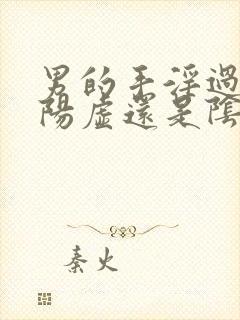 男的手淫過
陽虛還是陰
秦火